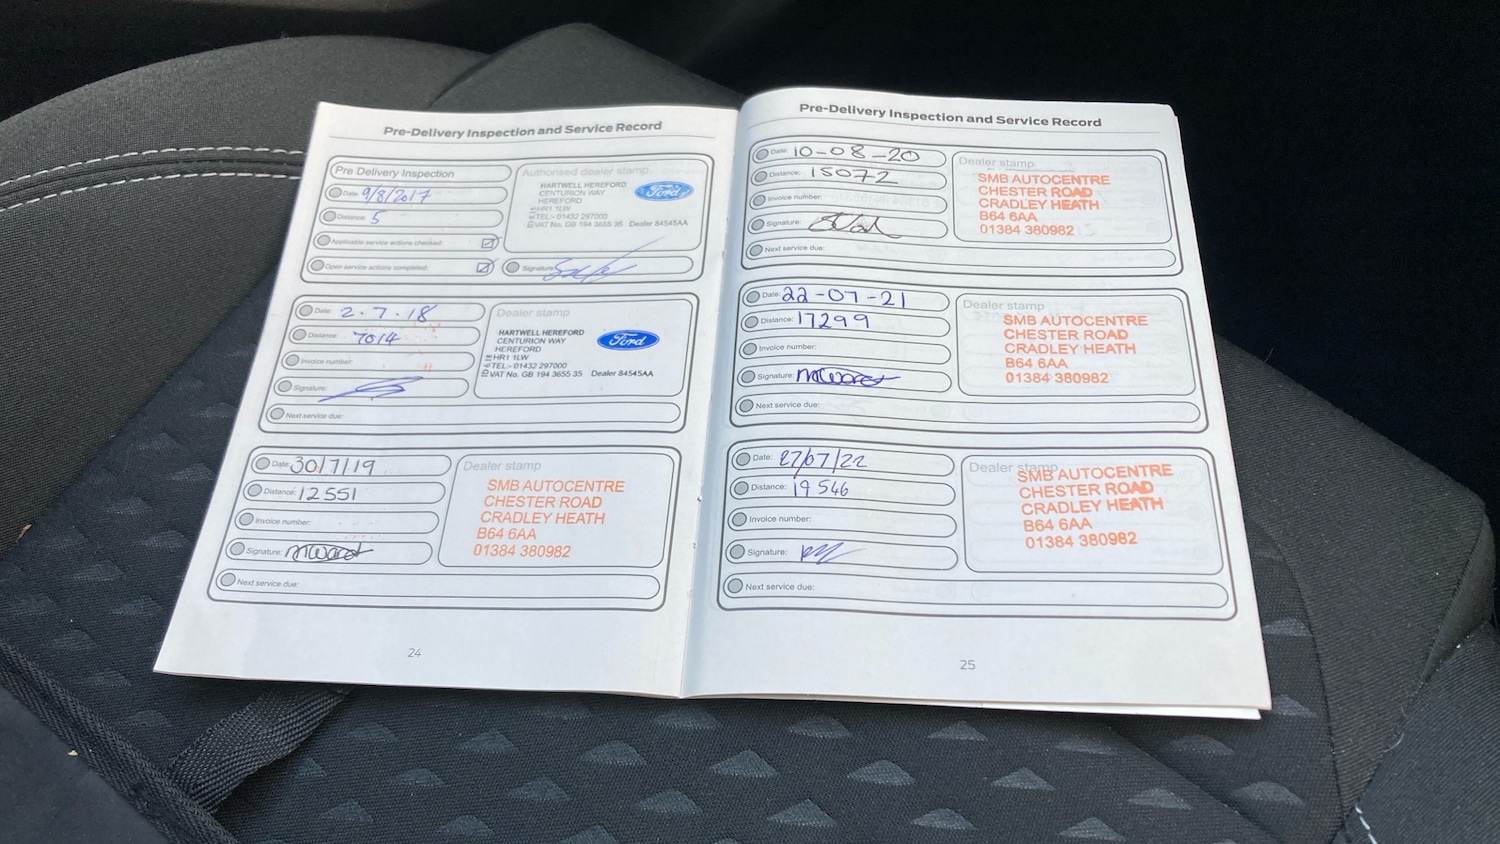 Pre-Delivery Inspection and Service Record
Pre Delivery Inspection
Date: 9/8/2017
Distance: 5
Applicable service actions checked:
Open service actions completed:
Authorised dealer stamp
HARTWELL HEREFORD
CENTURION WAY
HEREFORD
HR1 1LW
TEL:- 01432 297000
VAT No. GB 194 3655 35 Dealer 84545AA
Ford
Signature:
Date: 2.7.18
Distance: 7014
Invoice number:
Signature:
Next service due:
Dealer stamp
HARTWELL HEREFORD
CENTURION WAY
HEREFORD
HR1 1LW
TEL:- 01432 297000
VAT No. GB 194 3655 35 Dealer 84545AA
Ford
Date: 30/7/19
Distance: 12551
Invoice number:
Signature:
Next service due:
Dealer stamp
SMB AUTOCENTRE
CHESTER ROAD
CRADLEY HEATH
B64 6AA
01384 380982
24
Pre-Delivery Inspection and Service Record
Date: 10-08-20
Distance: 15072
Invoice number:
Signature:
Next service due:
Dealer stamp
SMB AUTOCENTRE
CHESTER ROAD
CRADLEY HEATH
B64 6AA
01384 380982
Date: 22-07-21
Distance: 17299
Invoice number:
Signature:
Next service due:
Dealer stamp
SMB AUTOCENTRE
CHESTER ROAD
CRADLEY HEATH
B64 6AA
01384 380982
Date: 27/07/22
Distance: 19546
Invoice number:
Signature:
Next service due:
Dealer stamp
SMB AUTOCENTRE
CHESTER ROAD
CRADLEY HEATH
B64 6AA
01384 380982
25